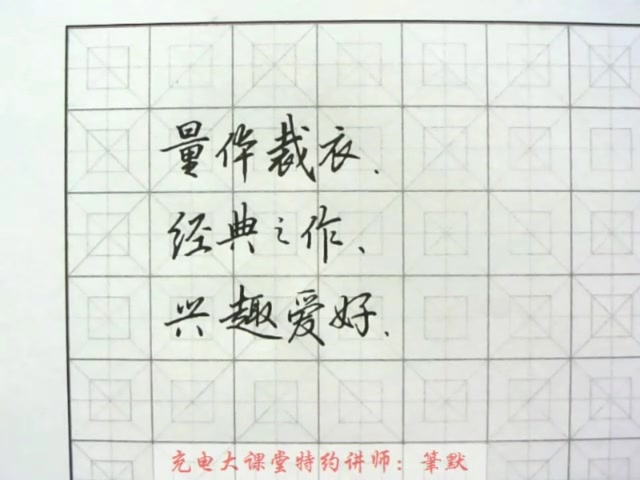 量体裁衣、
经典之作、
兴趣爱好、
充电大课堂特约讲师：筆默